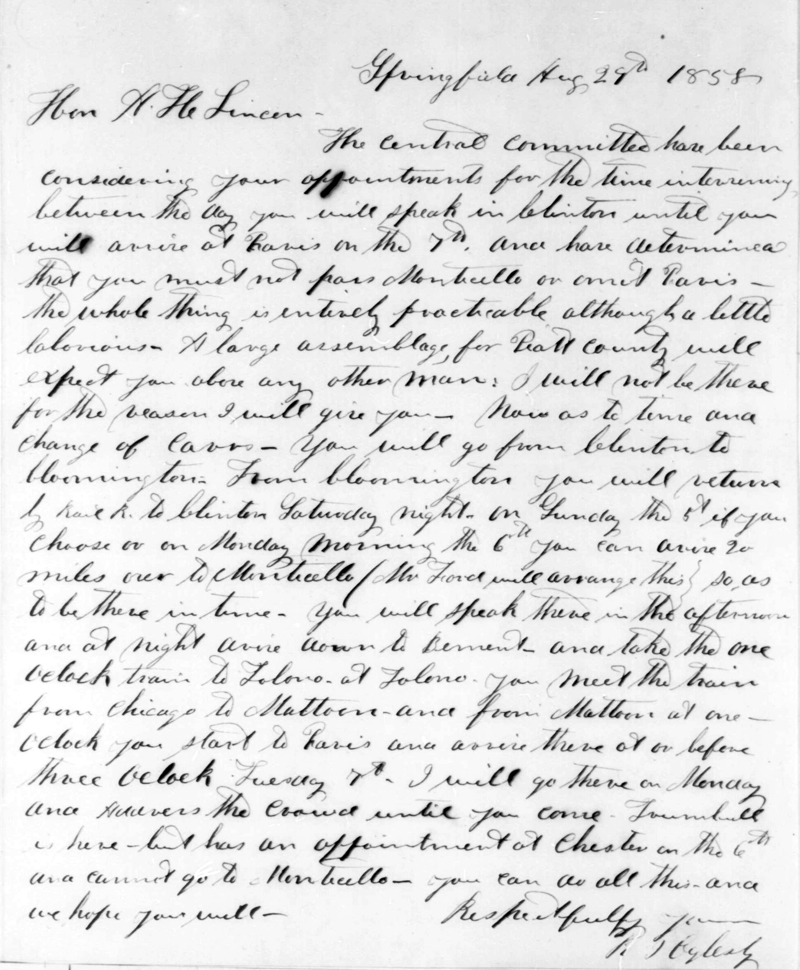 Springfield Aug 29th 1858
Hon A. Lincon -
The central committee have been
considering your appointments for the time intervening
between the day you will speak in Clinton until you
will arive at Paris on the 7th. and have determined
that you must not pass Monticello or omit Paris -
the whole thing is entirely practicable although a little
laborious - A large assemblage, for Piatt County will
expect you above any other man; I will not be there
for the reason I will give you - Now as to time and
change of Carrs - You will go from Clinton to
bloomington - From bloomington you will return
by Rail R. to Clinton Saturday night - on Sunday the 5th if you
choose or on Monday morning the 6th you can drive 20
miles over to Monticello (Mr Ford will arrange this) so as
to be there in time - You will speak there in the afternoon
and at night drive down to Bement - and take the one
Oclock train to Tolono - at Tolono - you meet the train
from Chicago to Mattoon - and from Mattoon at one -
Oclock you start to Paris and arrive there at or before
three Oclock Tuesday 7th - I will go there on Monday
and Address the Crowd until you come - Trumbull
is here - but has an appointment at Chester on the 6th
and cannot go to Monticello - you can do all this - and
we hope you will - Respectfully yours
R J Oglesby